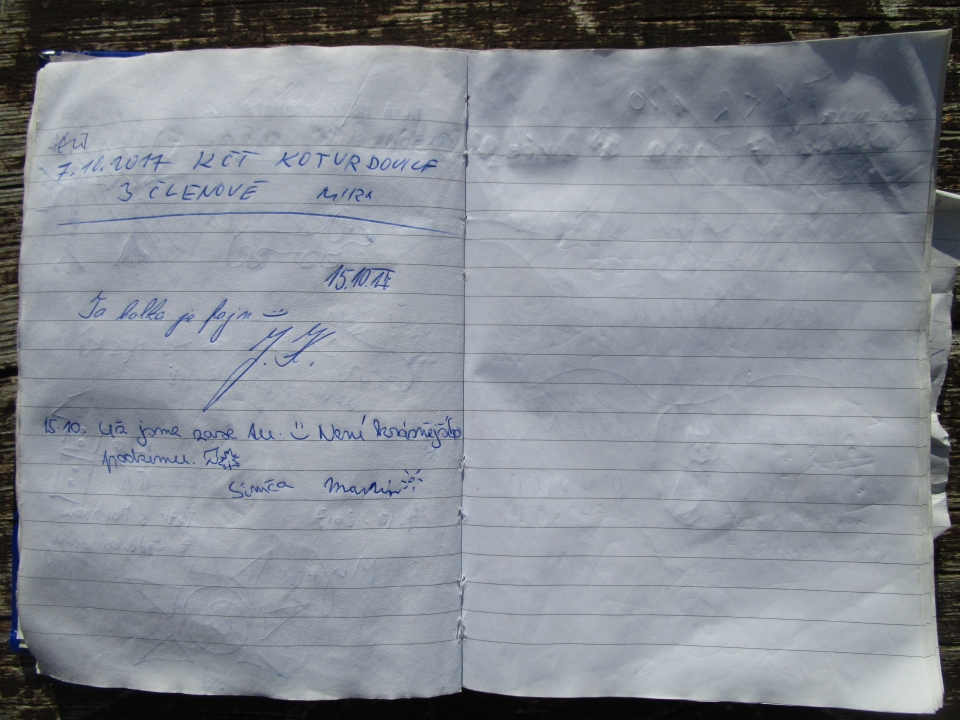 7.10.2017 KČT KOTVRDOVICE
3 ČLENOVÉ MIRA
15.10.17
Ta holka je fajn :)
J.K.
15.10. Už jsme zase tu. :) Není krásnějšího
podzimu.
Simča Martin